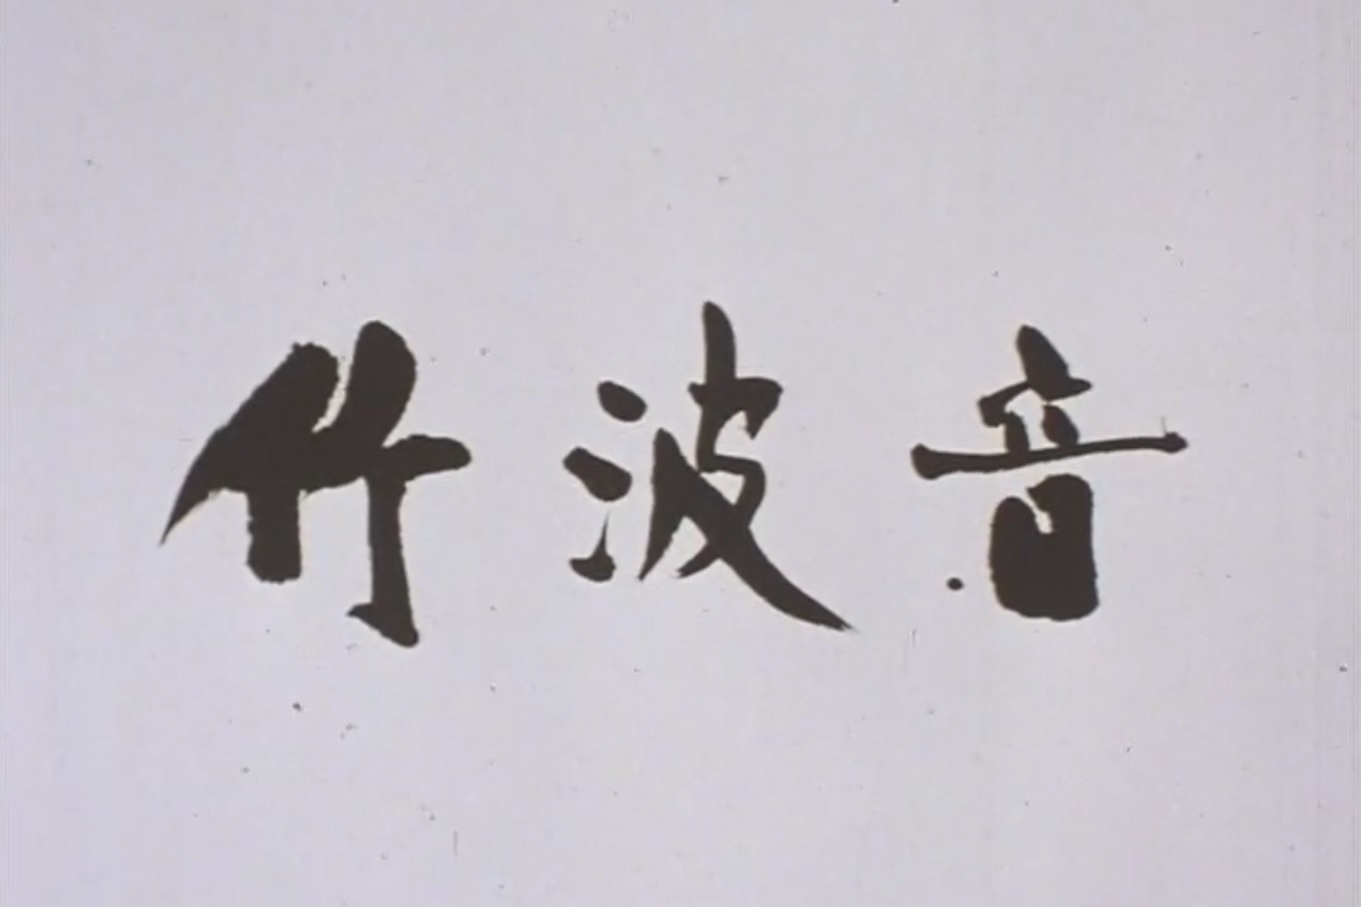 竹波音